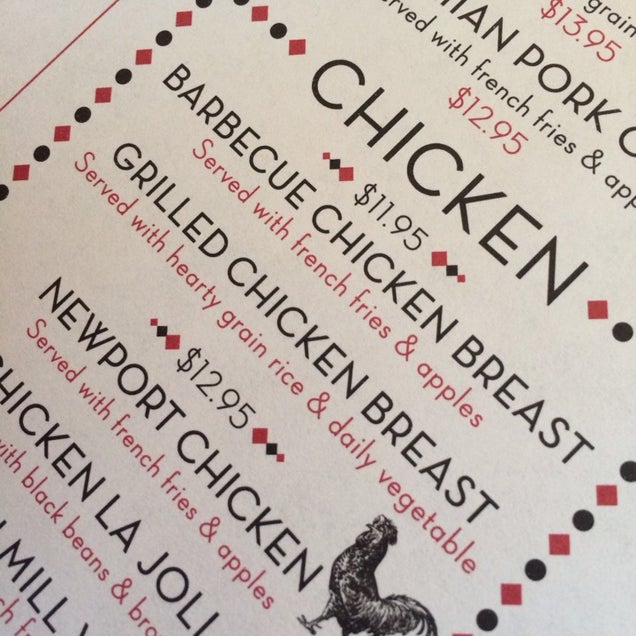 grain
$13.95
PORK
served with french fries &
$12.95
CHICKEN
$11.95
BARBECUE CHICKEN BREAST
Served with french fries & apples
GRILLED CHICKEN BREAST
Served with hearty grain rice & daily vegetable
$12.95
NEWPORT CHICKEN
Served with french fries & apples
CHICKEN LA JOLL
with black beans &
MILL